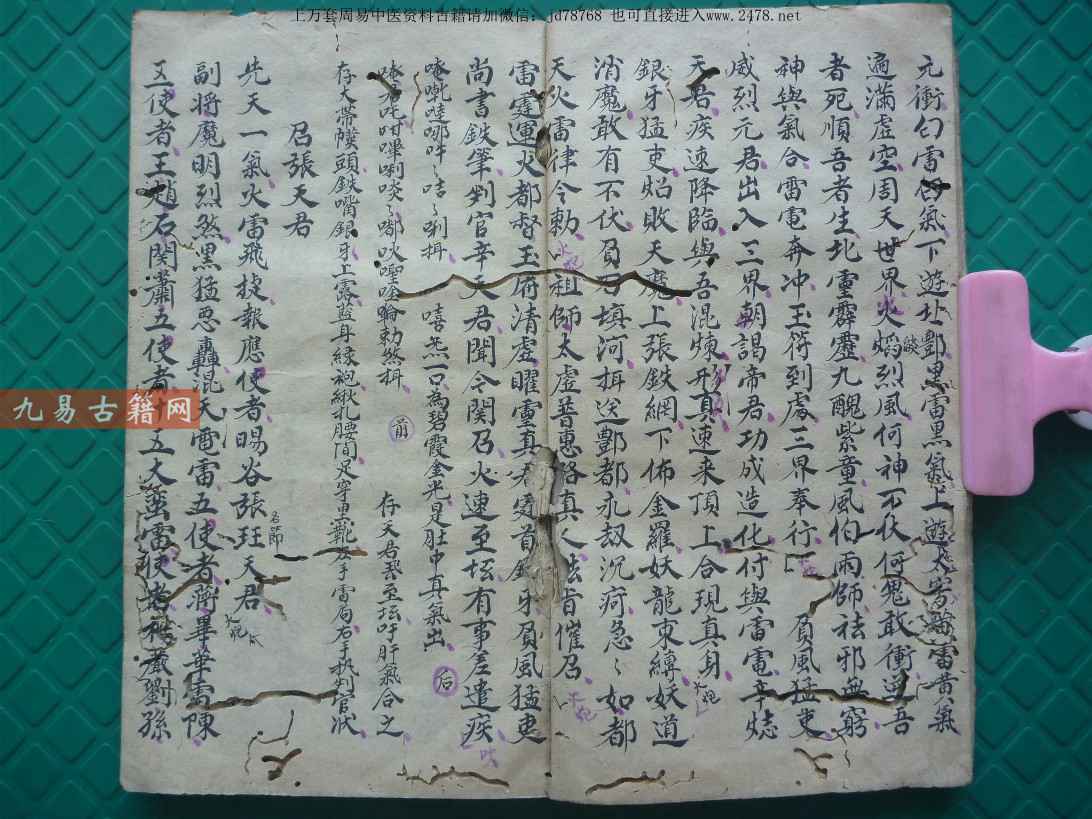 上万套周易中医资料古籍请加微信：jd78768 也可直接进入www.2478.net
九易古籍网
元衝勻雷白氣下遊北酆黑雷黑氣上遊太雷黃氣
遍滿虛空周天世界火焰烈風何神不伏何鬼敢衝逆吾
者死順吾者生北靈霹靂九醜紫童風伯雨師祛邪無窮
神與氣合雷電奔冲玉符到處三界奉行 負風猛吏
威烈元君出入三界朝謁帝君功成造化付與雷電辛
天君疾速降臨與吾混煉形真速来頂上合現真身
銀牙猛吏焰敗天魔上張鉄網下佈金羅妖龍束縛妖道
消魔敢有不伏負石填河揖送酆都永劫沉疴急〻如都
天火雷律令勅 祖師太虛普惠真人法旨催召
雷霆運火都督玉府清虛曜靈真君首銀牙負風猛吏
尚書鉄筆判官辛天君聞令関召火速至坛有事差遣疾
哪吽〻哇〻唎揖 嘻炁一口為碧霞金光是肚中真氣出 后
勅煞揖 前 存天君至坛吁肝氣合之
存大帶幞頭鉄嘴銀牙上露藍身綠袍扎腰間足穿黑靴左手雷局右手执判官狀
召張天君
先天一氣火雷飛捷報應使者暘谷張珏天君
名節
副将魔明烈煞黑猛惡轟混天電雷五使者蔣畢華雷陳
五使者王趙石関肅五使者 五大蛮雷使者劉孫